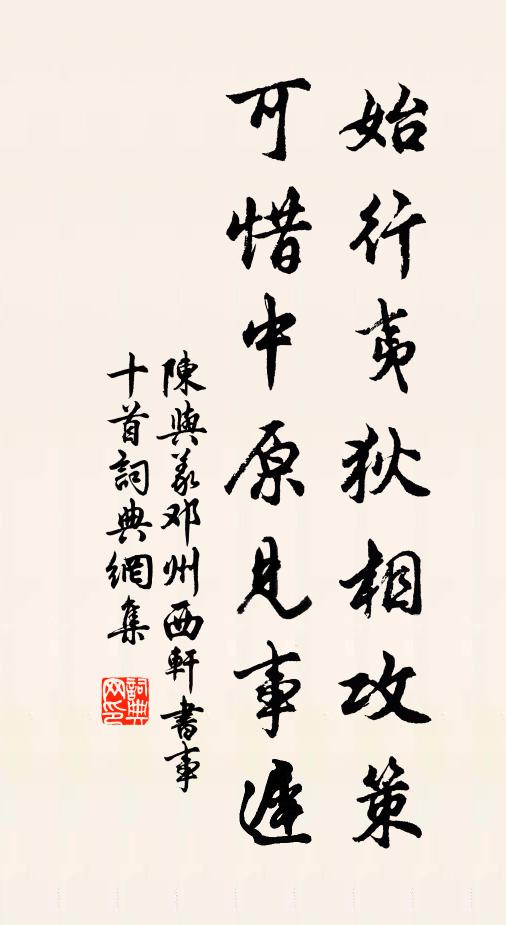 始行夷狄相攻策
可惜中原見事遲
陳與義邓州西軒書事
十首詞典網集
詞典
网印